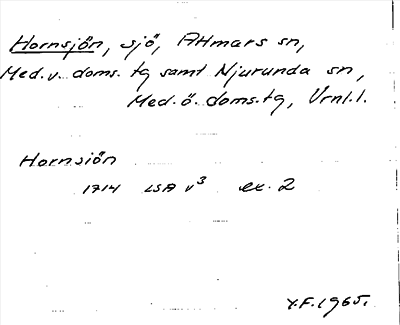 Hornsjön, sjö, Attmars sn,
Med. v. doms. tg samt Njurunda sn,
Med. ö. doms. tg, Vrnl. l.
Hornsiön
1714 LSA v³ ex. 2
Y.F. 1965.